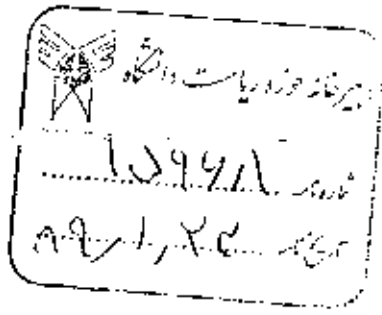 دبیرخانه حوزه ریاست دانشگاه
شماره ۱۵۹۶۸
تاریخ ۸۹/۱/۲۴